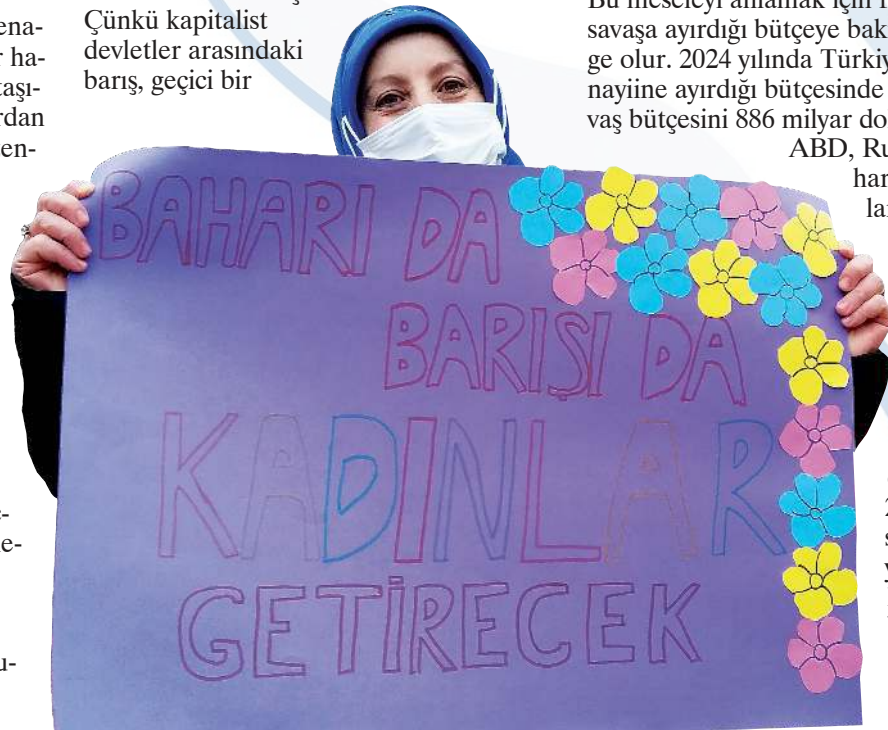 ena-
r ha-
taşı-
rdan
en-
Çünkü kapitalist
devletler arasındaki
barış, geçici bir
savaşa ayırdığı bütçeye bak
ge olur. 2024 yılında Türkiy
nayiine ayırdığı bütçesinde
vaş bütçesini 886 milyar do
ABD, Ru
har
BAHARI DA
BARIŞI DA
KADINLAR
GETİRECEK